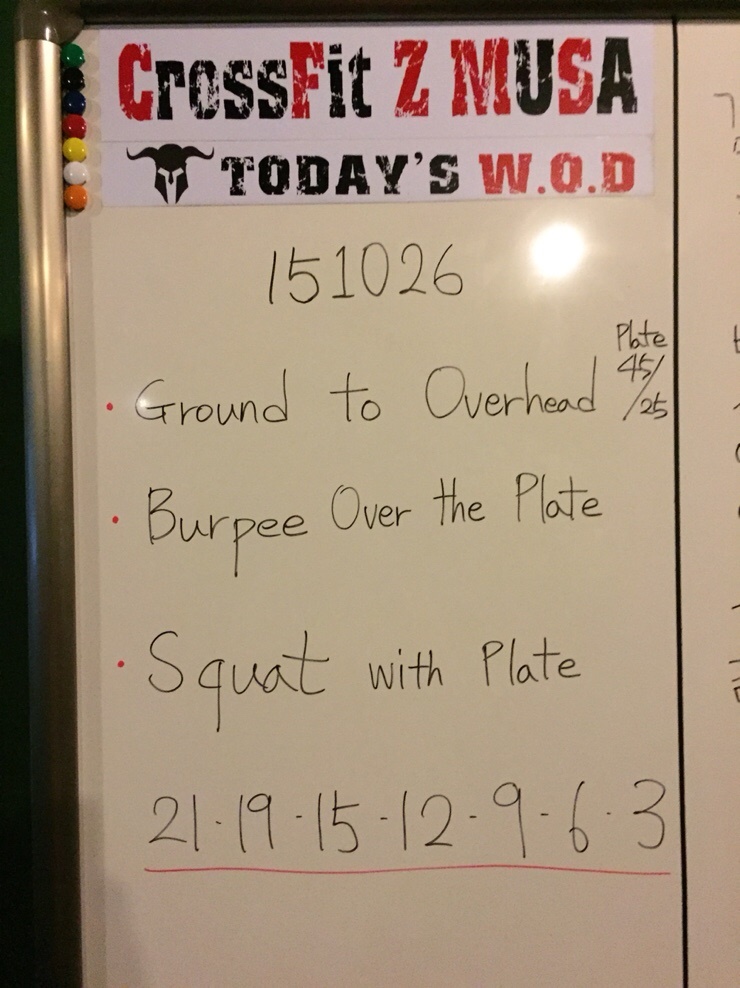 CrossFit Z MUSA
TODAY'S W.O.D
151026
Plate
45/
/25
· Ground to Overhead
· Burpee Over the Plate
· Squat with Plate
21-19-15-12-9-6-3